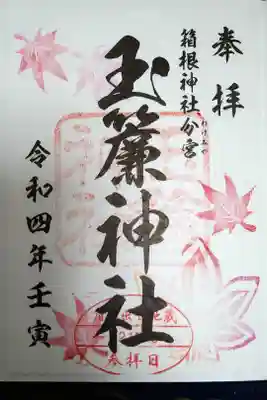 奉拝
箱根神社分宮
わけみや
玉簾神社
令和四年壬寅
参拝日